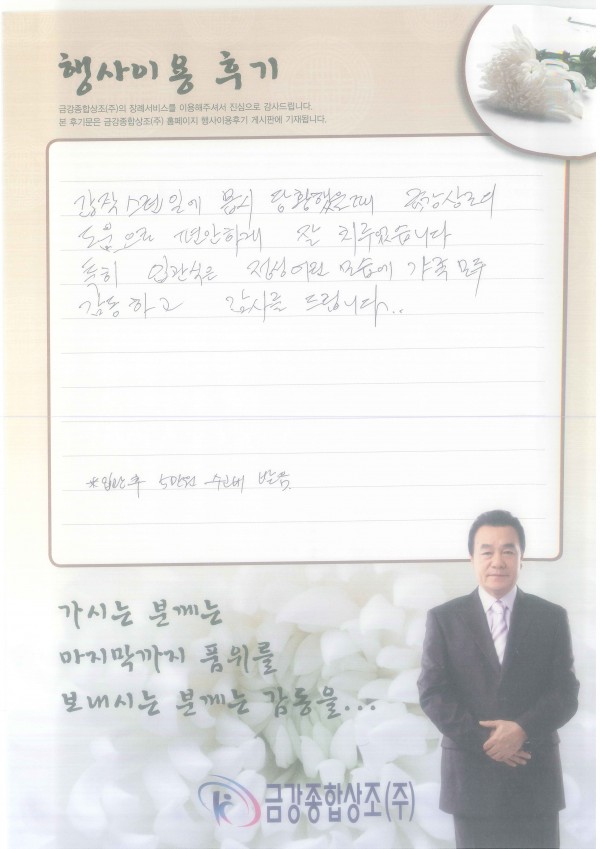 행사이용 후기
금강종합상조(주)의 장례서비스를 이용해주셔서 진심으로 감사드립니다.
본 후기문은 금강종합상조(주) 홈페이지 행사이용후기 게시판에 기재됩니다.
갑작스런 일에 몹시 당황했을때 금강상조의
도움으로 편안하게 잘 치루었습니다
특히 입관식은 정성어린 모습에 가족 모두
감동하고 감사를 드립니다..
*입관후 5만원 수고비 받음.
가시는 분께는
마지막까지 품위를
보내시는 분께는 감동을...
금강종합상조(주)